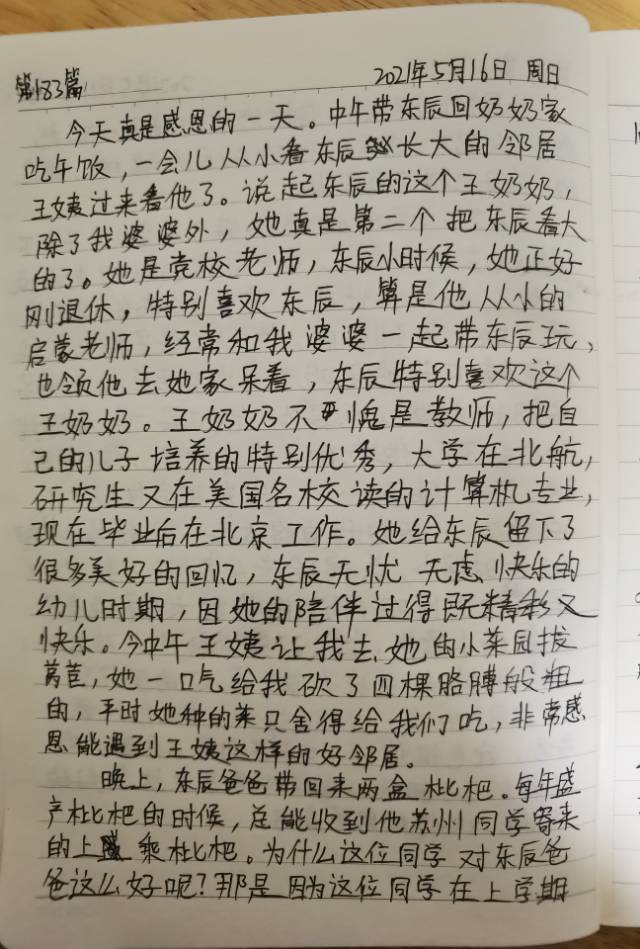 第183篇
2021年5月16日 周日
今天真是感恩的一天。中午带东辰回奶奶家
吃午饭,一会儿从小看东辰长大的邻居
王姨过来看他了。说起东辰的这个王奶奶,
除了我婆婆外,她真是第二个把东辰看大
的了。她是党校老师,东辰小时候,她正好
刚退休,特别喜欢东辰,算是他从小的
启蒙老师,经常和我婆婆一起带东辰玩,
也领他去她家呆着,东辰特别喜欢这个
王奶奶。王奶奶不愧是教师,把自
己的儿子培养的特别优秀,大学在北航,
研究生又在美国名校读的计算机专业,
现在毕业后在北京工作。她给东辰留下了
很多美好的回忆,东辰无忧无虑快乐的
幼儿时期,因她的陪伴过得既精彩又
快乐。今中午王姨让我去她的小菜园拔
莴苣,她一口气给我砍了四棵胳膊般粗
的,平时她种的菜只舍得给我们吃,非常感
恩能遇到王姨这样的好邻居。
晚上,东辰爸爸带回来两盒枇杷。每年盛
产枇杷的时候,总能收到他苏州同学寄来
的上乘枇杷。为什么这位同学对东辰爸
爸这么好呢?那是因为这位同学在上学期